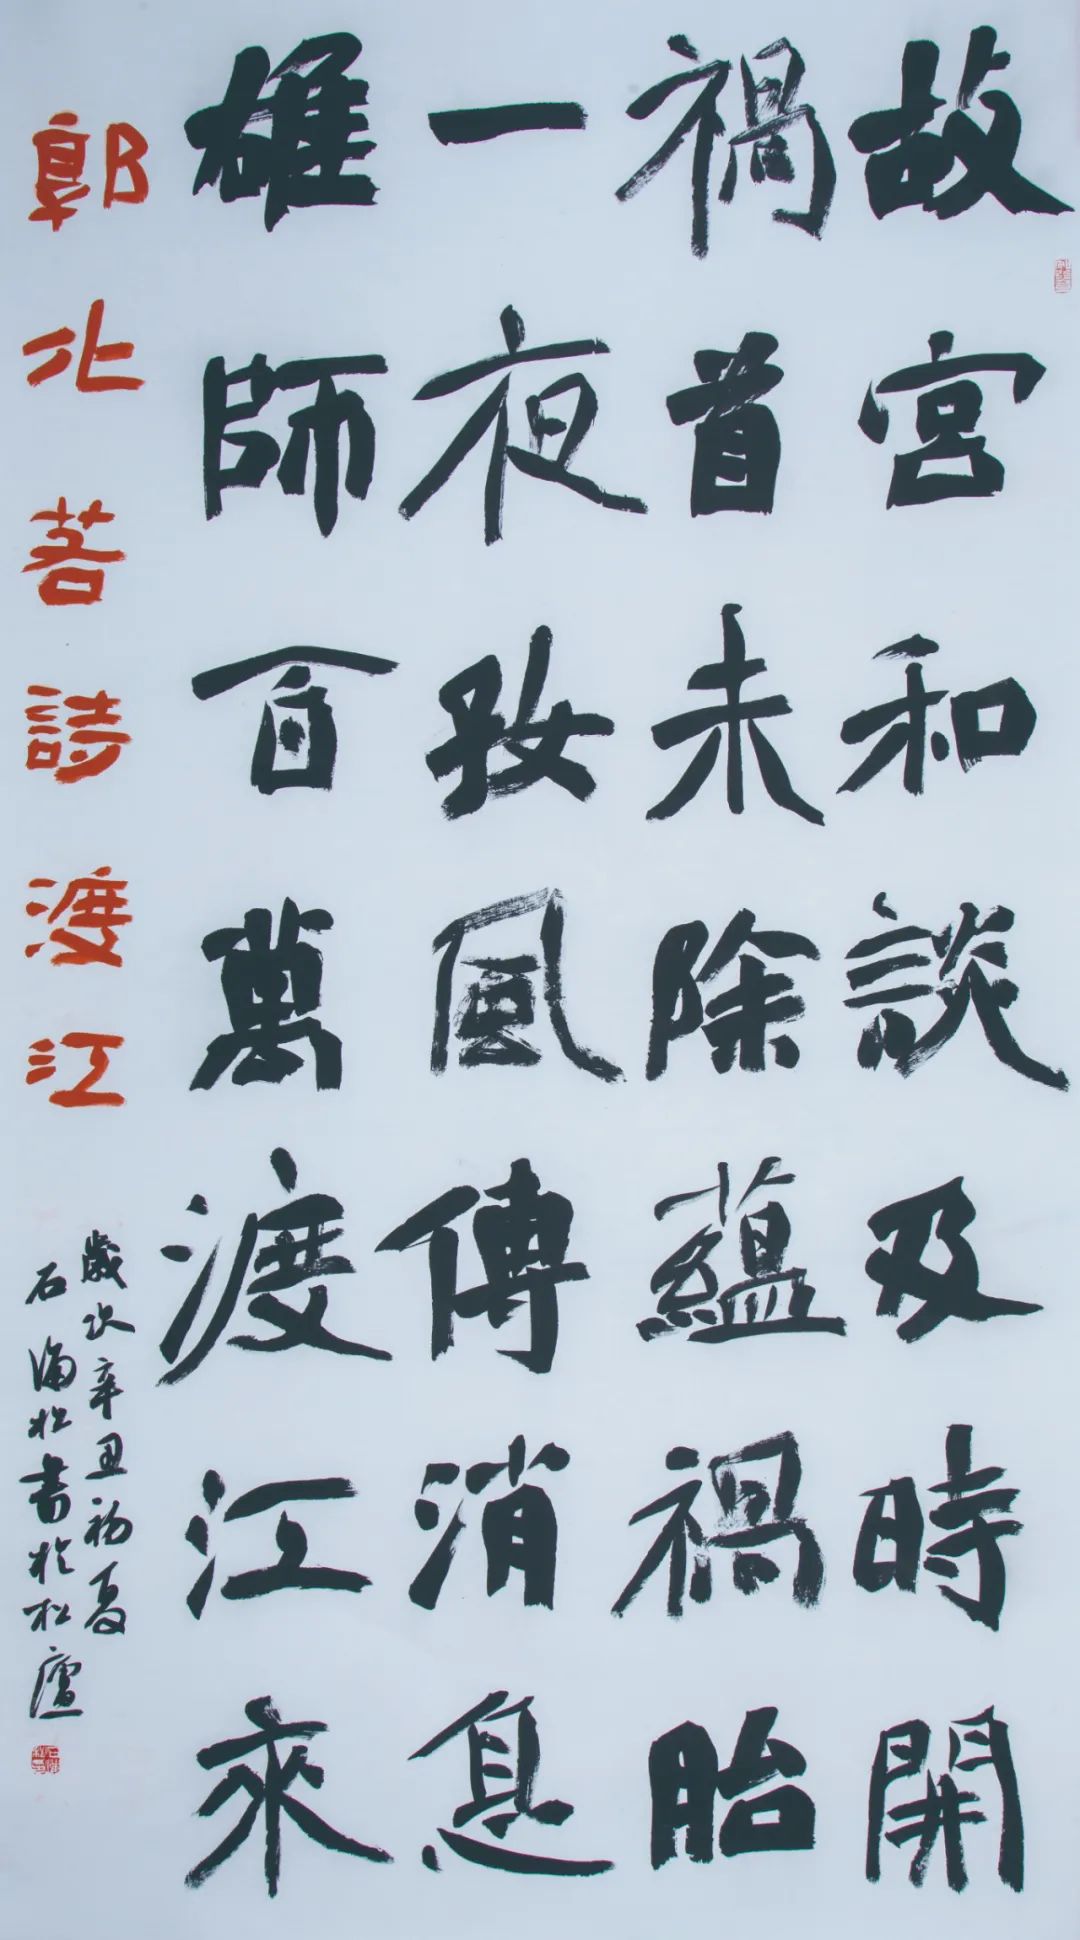 故宫和談及時開
禍首未除蘊禍胎
一夜好風傳消息
雄師百萬渡江來
郭化若詩渡江
歲次辛丑初夏
石海松書於松廬